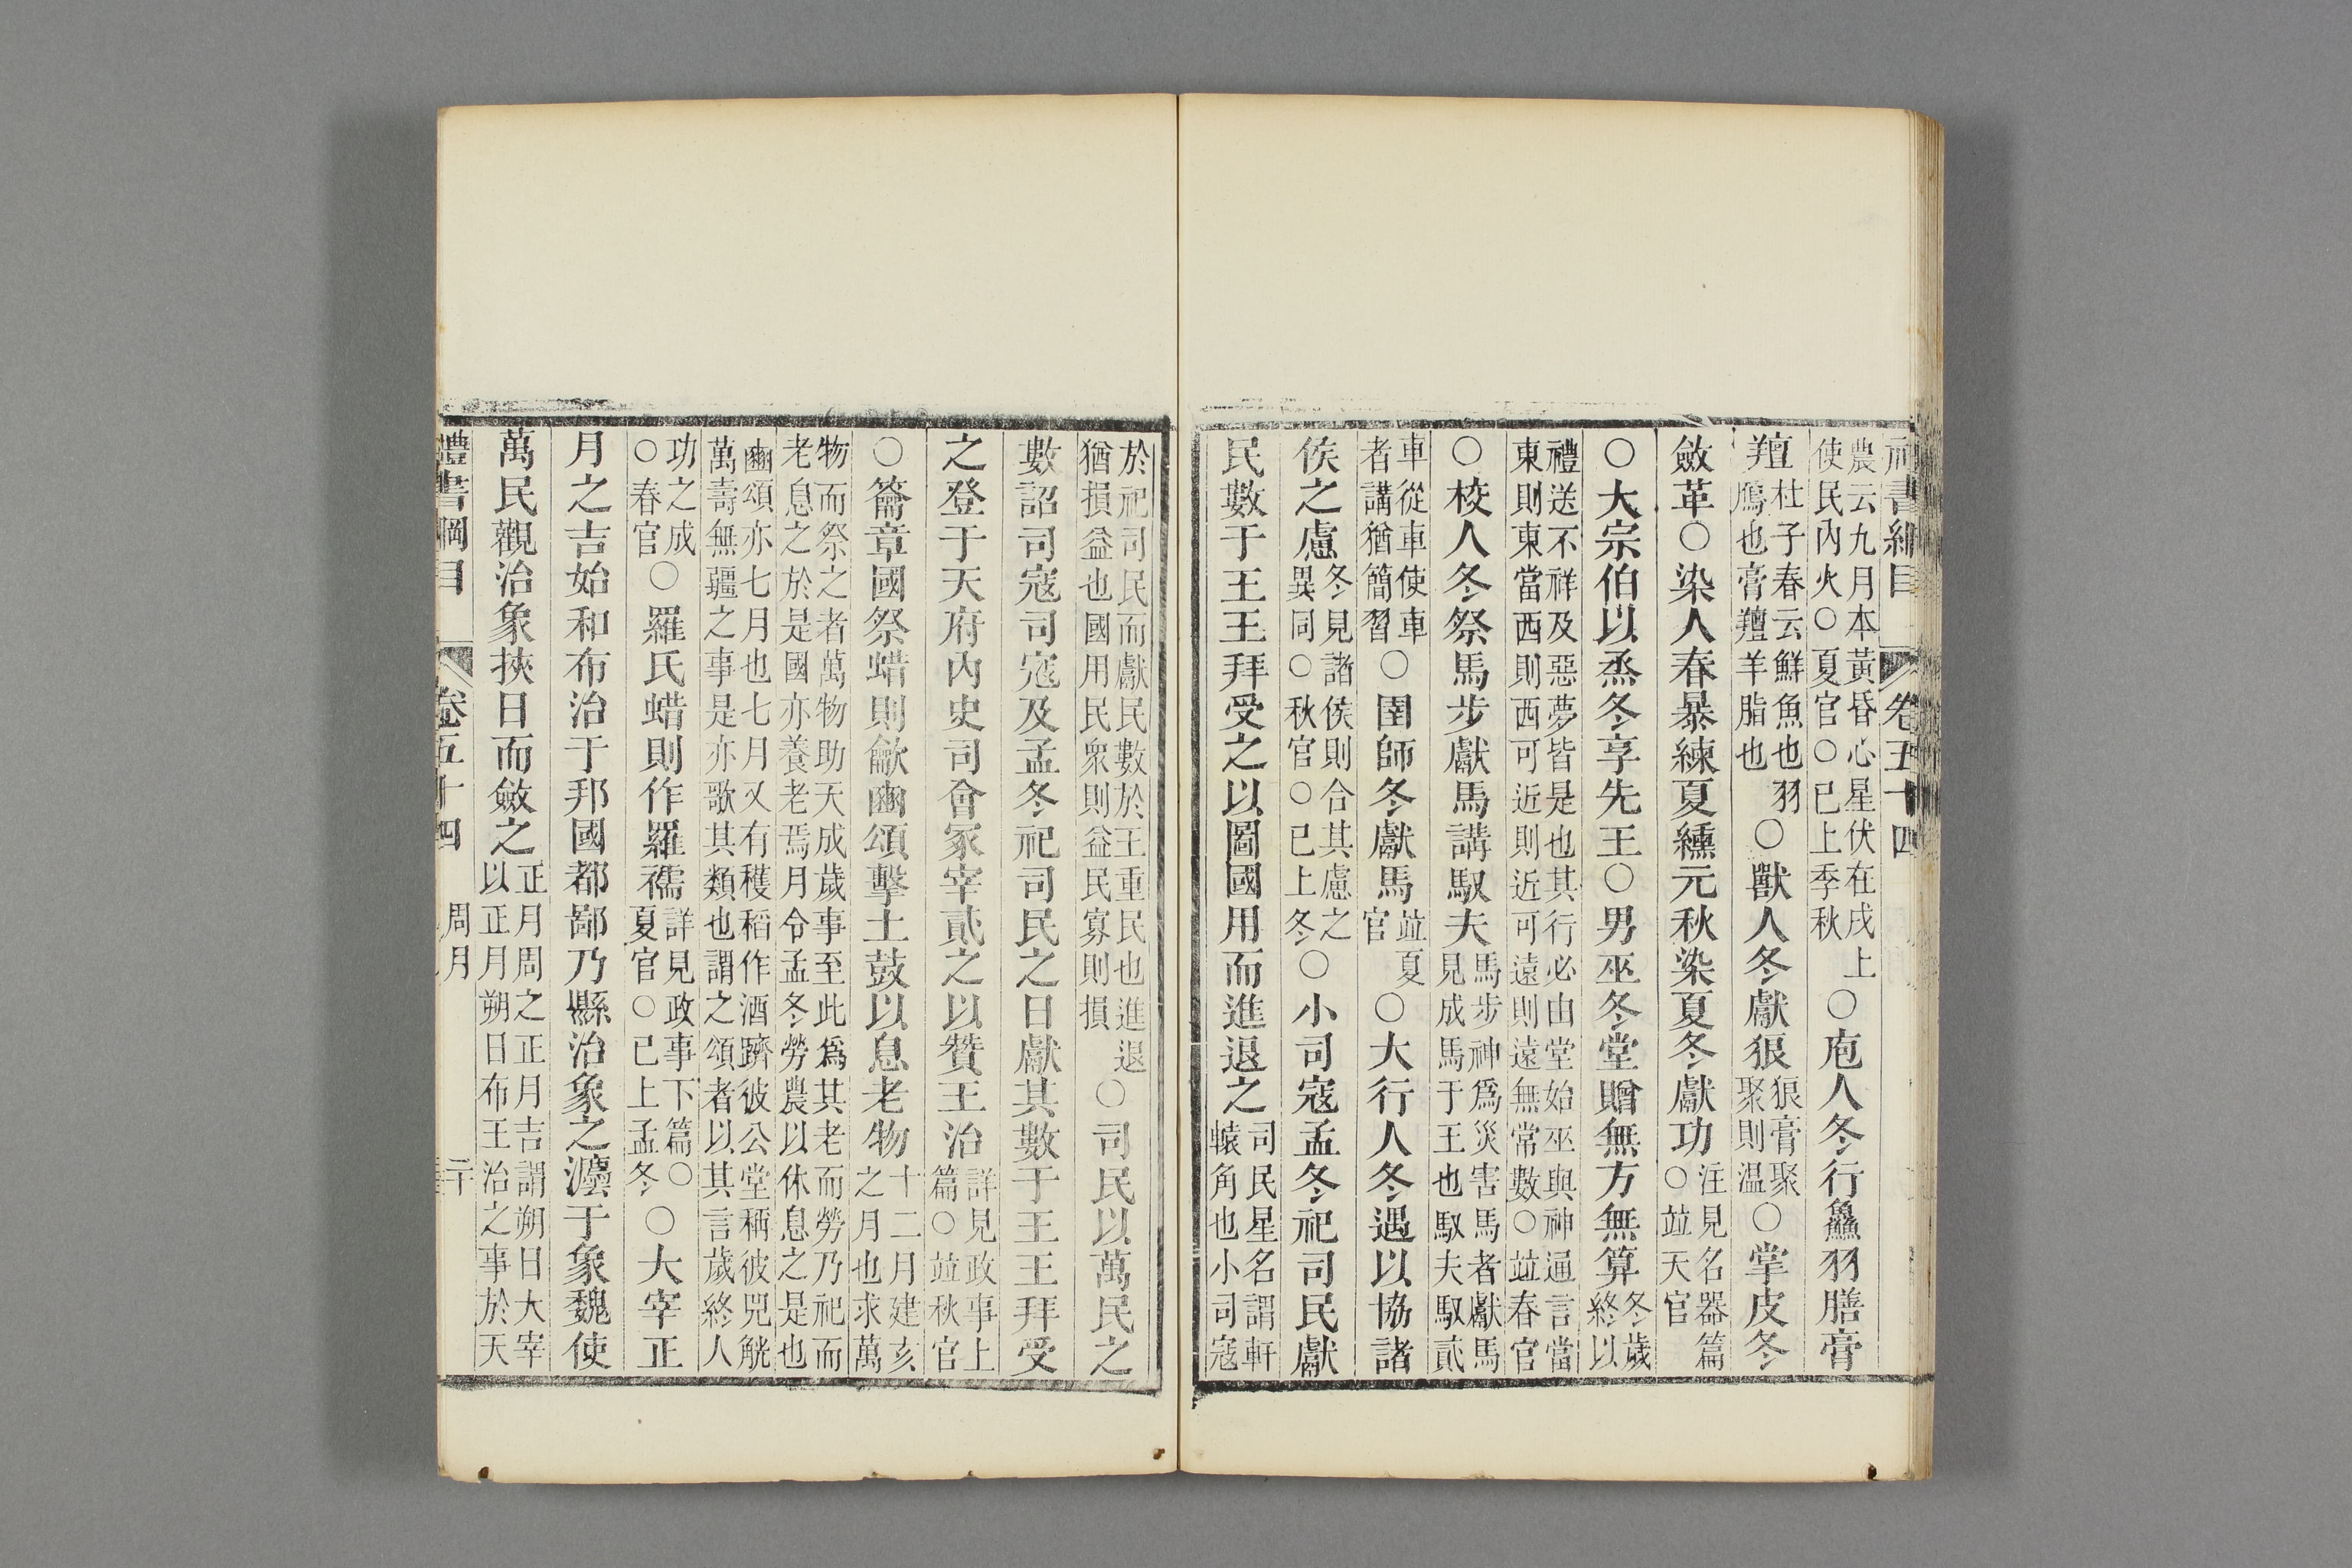 禮書綱目
卷五十四
農云九月本黃昏心星伏在戌上
使民內火○夏官○已上季秋
○庖人冬行鱻羽膳膏
羶
杜子春云鮮魚也羽
鴈也膏羶羊脂也
○獸人冬獻狼
狼膏聚聚則温
○掌皮冬
斂革○染人春暴練夏纁元秋染夏冬獻功
注見名器篇
○竝天官
○大宗伯以烝冬享先王○男巫冬堂贈無方無算
冬歲終以
禮送不祥及惡夢皆是也其行必由堂始巫與神通言當
東則東當西則西可近則近可遠則遠無常數○竝春官
○校人冬祭馬步獻馬講馭夫
馬步神爲災害馬者獻馬
見成馬于王也馭夫馭貳
車從車使車
者講猶簡習
○圉師冬獻馬
竝夏官
○大行人冬遇以協諸
侯之慮
冬見諸侯則合其慮之
異同○秋官○已上冬
○小司寇孟冬祀司民獻
民數于王王拜受之以圖國用而進退之
司民星名謂軒
轅角也小司寇
於祀司民而獻民數於王重民也進退
猶損益也國用民衆則益民寡則損
○司民以萬民之
數詔司寇司寇及孟冬祀司民之日獻其數于王王拜受
之登于天府內史司會冢宰貳之以贊王治
詳見政事上
篇○竝秋官
○籥章國祭蜡則龡豳頌擊土鼓以息老物
十二月建亥
之月也求萬
物而祭之者萬物助天成歲事至此爲其老而勞乃祀而
老息之於是國亦養老焉月令孟冬勞農以休息之是也
豳頌亦七月也七月又有穫稻作酒躋彼公堂稱彼兕觥
萬壽無疆之事是亦歌其類也謂之頌者以其言歲終人
功之成
○春官
○羅氏蜡則作羅襦
詳見政事下篇○
夏官○已上孟冬
○大宰正
月之吉始和布治于邦國都鄙乃縣治象之灋于象魏使
萬民觀治象挾日而斂之
正月周之正月吉謂朔日大宰
以正月朔日布王治之事於天
禮書綱目
卷五十四
周月
二十